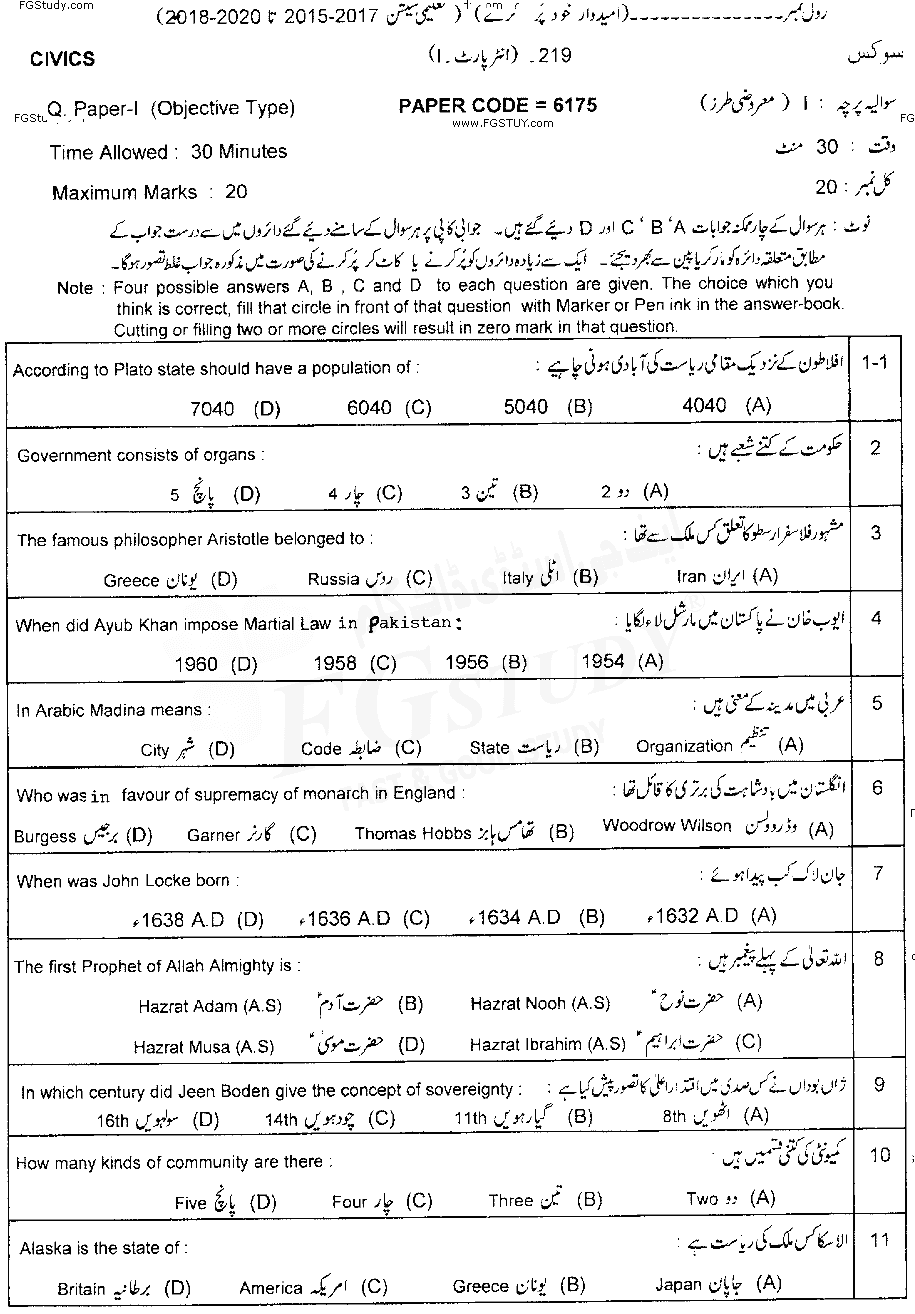 FGStudy.com
رول نمبر ـــــــــــــــ (امیدوار خود پُر کرے) (تعلیمی سیشن 2015-2017 تا 2018-2020)
CIVICS 219۔ (انٹر پارٹ ۔ I) سوکس
Q. Paper-I (Objective Type) PAPER CODE = 6175 سوالیہ پرچہ : I (معروضی طرز)
www.FGSTUY.com
Time Allowed : 30 Minutes وقت : 30 منٹ
Maximum Marks : 20 کل نمبر : 20
نوٹ : ہر سوال کے چار ممکنہ جوابات A ' B ' C اور D دیئے گئے ہیں۔ جوابی کاپی پر ہر سوال کے سامنے دیئے گئے دائروں میں سے درست جواب کے
مطابق متعلقہ دائرہ کو مارکر یا پین سے بھر دیجئے۔ ایک سے زیادہ دائروں کو پُر کرنے یا کاٹ کر پُر کرنے کی صورت میں مذکورہ جواب غلط تصور ہوگا۔
Note : Four possible answers A, B , C and D to each question are given. The choice which you
think is correct, fill that circle in front of that question with Marker or Pen ink in the answer-book.
Cutting or filling two or more circles will result in zero mark in that question.
According to Plato state should have a population of : افلاطون کے نزدیک مقامی ریاست کی آبادی ہونی چاہیے : 1-1
7040 (D) 6040 (C) 5040 (B) 4040 (A)
Government consists of organs : حکومت کے کتنے شعبے ہیں : 2
5 پانچ (D) 4 چار (C) 3 تین (B) 2 دو (A)
The famous philosopher Aristotle belonged to : مشہور فلاسفر ارسطو کا تعلق کس ملک سے تھا : 3
Greece یونان (D) Russia روس (C) Italy اٹلی (B) Iran ایران (A)
When did Ayub Khan impose Martial Law in Pakistan: ایوب خان نے پاکستان میں مارشل لاء لگایا : 4
1960 (D) 1958 (C) 1956 (B) 1954 (A)
In Arabic Madina means : عربی میں مدینہ کے معنی ہیں : 5
City شہر (D) Code ضابطہ (C) State ریاست (B) Organization تنظیم (A)
Who was in favour of supremacy of monarch in England : انگلستان میں بادشاہت کی برتری کا قائل تھا : 6
Burgess برجیس (D) Garner گارنر (C) Thomas Hobbs تھامس ہابز (B) Woodrow Wilson وڈرو ولسن (A)
When was John Locke born : جان لاک کب پیدا ہوئے : 7
1638 A.D ء (D) 1636 A.D ء (C) 1634 A.D ء (B) 1632 A.D ء (A)
The first Prophet of Allah Almighty is : اللہ تعالیٰ کے پہلے پیغمبر ہیں : 8
Hazrat Adam (A.S) حضرت آدمؑ (B) Hazrat Nooh (A.S) حضرت نوحؑ (A)
Hazrat Musa (A.S) حضرت موسیٰؑ (D) Hazrat Ibrahim (A.S) حضرت ابراہیمؑ (C)
In which century did Jeen Boden give the concept of sovereignty : ژاں بوداں نے کس صدی میں اقتدار اعلیٰ کا تصور پیش کیا ہے : 9
16th سولہویں (D) 14th چودہویں (C) 11th گیارہویں (B) 8th اٹھویں (A)
How many kinds of community are there : کمیونٹی کی کتنی قسمیں ہیں : 10
Five پانچ (D) Four چار (C) Three تین (B) Two دو (A)
Alaska is the state of : الاسکا کس ملک کی ریاست ہے : 11
Britain برطانیہ (D) America امریکہ (C) Greece یونان (B) Japan جاپان (A)
FGSTUDY
FAST & GOOD STUDY